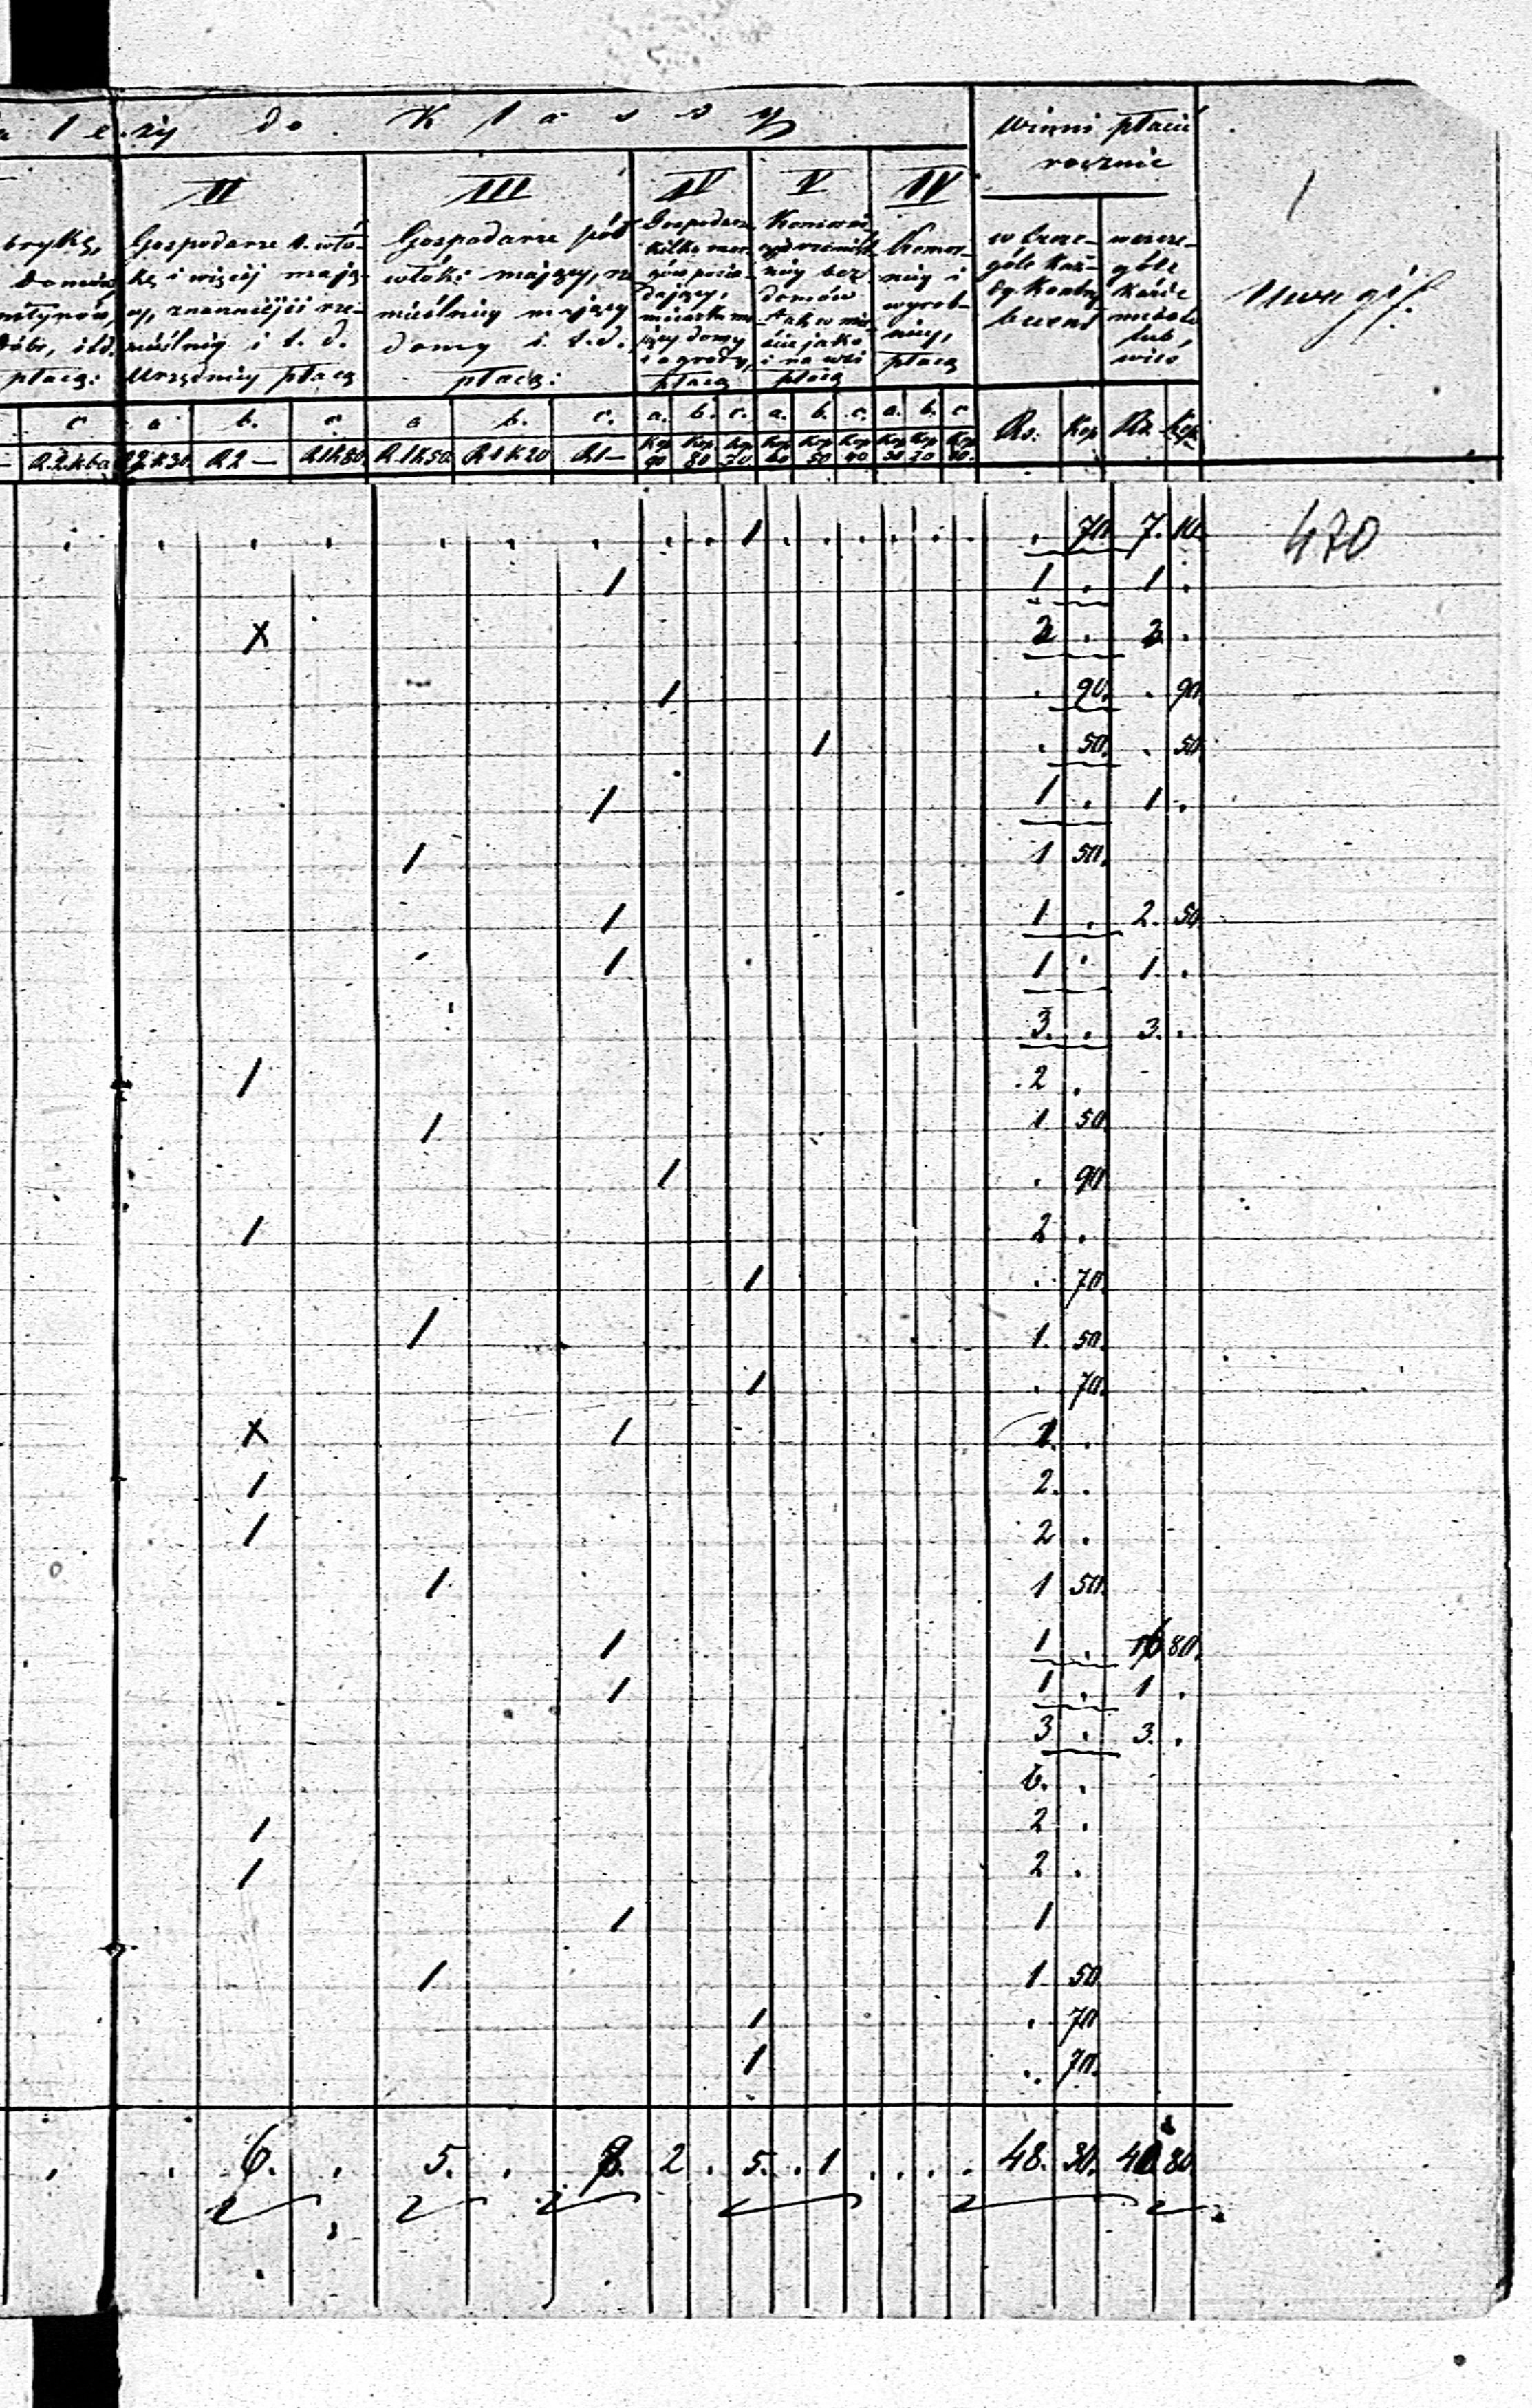 leży do Klassy
Winni płacić
rocznie
II III IV V IV
Uwagi
brykę,
Gospodarze 1. włó-
kę i więcej mają-
cy, znaczniejsi rze-
mieślnicy i t. d.
Urzędnicy płacą
Gospodarze pół
włóki mający, rze
mieślnicy mający
domy i t.d.
płacą:
Gospodarze
kilka mor-
gów posia-
dający,
domy
i ogrody,
płacą
bez
domów
tak w mie-
ście jako
i na wsi
płacą
Komor-
nicy i
wyrob-
nicy,
płacą
w szcze-
góle każ-
dy Kontry-
buent
w szcze-
góle
każde
miasto
lub
wieś
płacą:
c a b. c a b. c. a. b. c. a. b. c. a. b. c
R.2.k60 R2.k30 R2 — R1k80 R.1k50 R1k20 R1— Kop 90 Kop 80 Kop 70 Kop 60 Kop 50 Kop 40 Kop 30 Kop 20 Kop 10. Rs: Kop Rs. Kop
. . . . . . . . . 1 . . . . . . . 70. 7. 10. 470
1 1 . 1 .
X 2 . 2 .
1 . 90. . 90.
1 . 50. . 50
1 1 . 1 .
1 1 50.
1 1 . 2. 50
1 1 . 1 .
3. . 3. .
1 2 .
1 1 50
1 . 90
1 2 .
1 . 70.
1 1. 50.
1 . 70.
X 1 1. .
1 2. .
1 2 .
1 1 50.
1 1 . 16 80.
1 1 . 1 .
3 . 3. .
6. .
1 2 .
1 2 .
1 1
1 1 50
1 . 70
1 . 70.
. . 6. . 5. . 8. 2 . 5. . 1 . . . . 48. 30. 40 80.